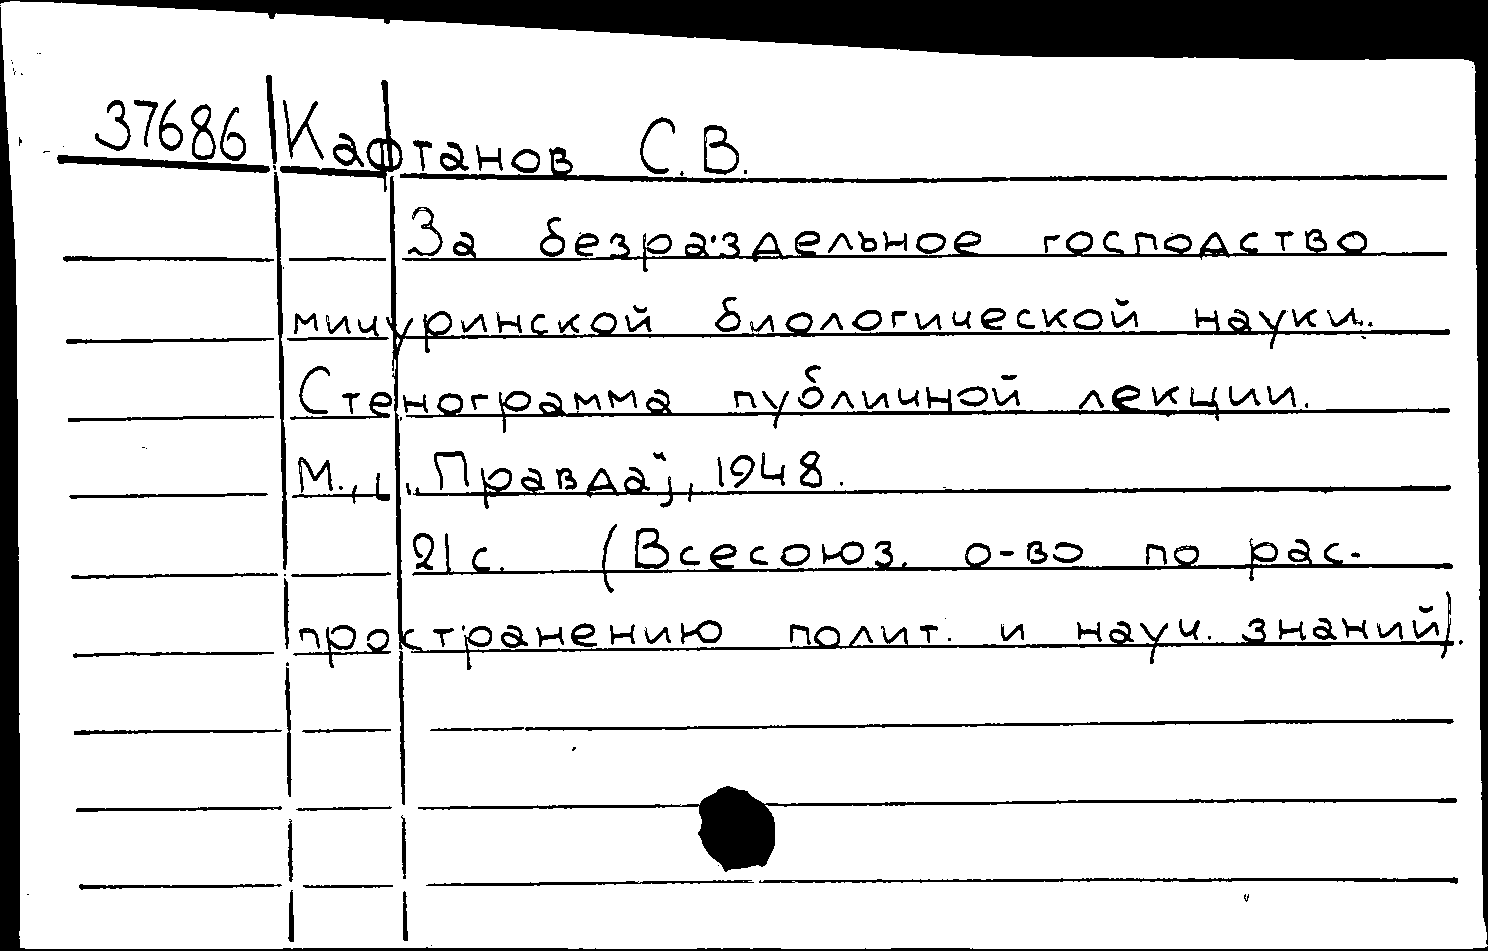 37686 Кафтанов С.В.
За безраздельное господство
мичуринской биологической науки.
Стенограмма публичной лекции.
М., [„Правда"], 1948.
21 с. (Всесоюз. о-во по рас-
пространению полит. и науч. знаний).